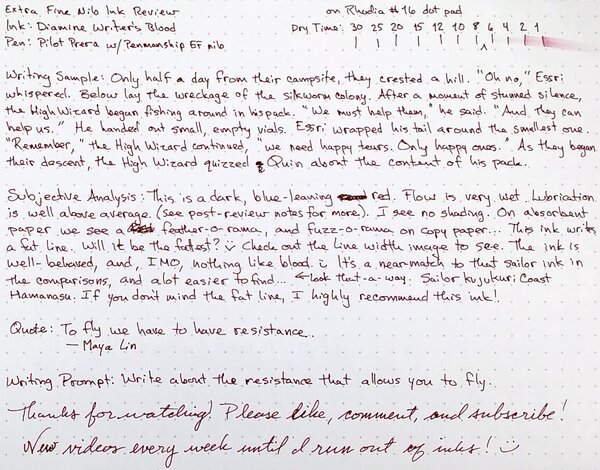 Extra Fine Nib Ink Review
on Rhodia #16 dot pad
Ink: Diamine Writer's Blood
Dry Time: 30 25 20 15 12 10 8 6 4 2 1
Pen: Pilot Prera w/Penmanship EF nib
Writing Sample: Only half a day from their campsite, they crested a hill. "Oh no," Essri
whispered. Below lay the wreckage of the silkworm colony. After a moment of stunned silence,
the High Wizard began fishing around in his pack. "We must help them," he said. "And they can
help us." He handed out small, empty vials. Essri wrapped his tail around the smallest one.
"Remember," the High Wizard continued, "we need happy tears. Only happy ones." As they began
their descent, the High Wizard quizzed Quin about the content of his pack.
Subjective Analysis: This is a dark, blue-leaning red. Flow is very wet. Lubrication
is well above average. (see post-review notes for more). I see no shading. On absorbent
paper we see a feather-o-rama, and fuzz-o-rama on copy paper... This ink writes
a fat line. Will it be the fattest? Check out the line width image to see. The ink is
well-behaved, and, IMO, nothing like blood. It's a near-match to that sailor ink in
the comparisons, and alot easier to find... ← look that-a-way. Sailor kujukuri Coast
Hamanasu. If you don't mind the fat line, I highly recommend this ink!
Quote: To fly we have to have resistance..
— Maya Lin
Writing Prompt: Write about the resistance that allows you to fly.
Thanks for watching! Please like, comment, and subscribe!
New videos every week until I run out of inks!